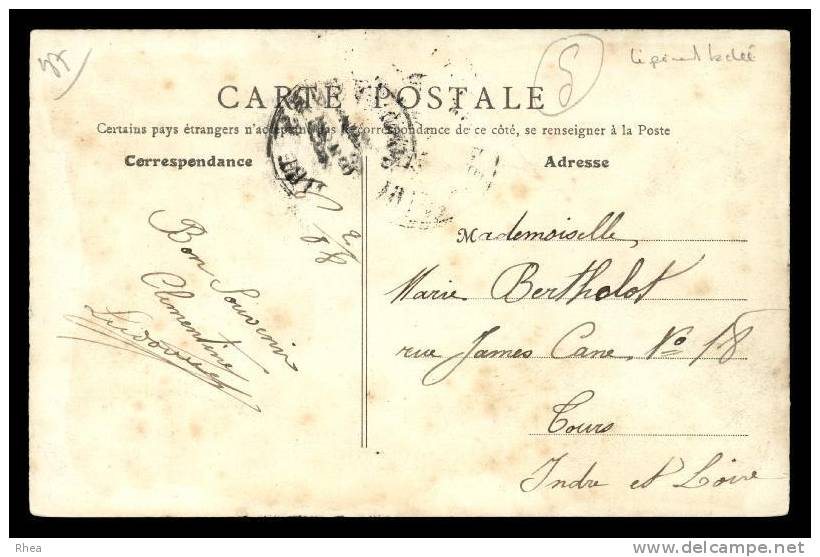 CARTE POSTALE
Certains pays étrangers n'acceptant pas la correspondance de ce côté, se renseigner à la Poste
Correspondance
Adresse
Bon Souvenir
Clementine
Mademoiselle,
Marie Bertholot
rue James Cane, No 18
Tours
Indre et Loire
Rhea
delcampe.net